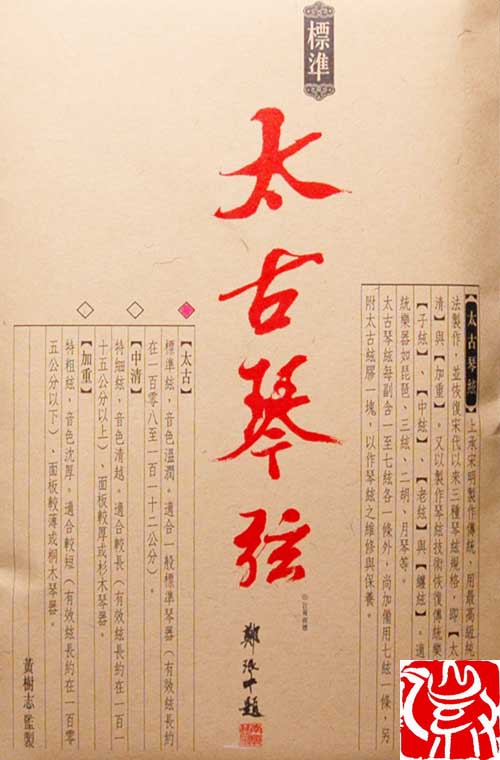 標準
太古琴弦
【太古琴絃】上承宋明製作傳統，用最高級純
法製作，並恢復宋代以來三種琴絃規格，即【太
清】與【加重】，又以製作琴絃技術恢復傳統樂
【子絃】、【中絃】、【老絃】與【纏絃】，適
統樂器如琵琶、三絃、二胡、月琴等。
太古琴絃每副含一至七絃各一條外，尚加備用七絃一條，另
附太古絃膠一塊，以作琴絃之維修與保養。
【太古】
標準絃，音色溫潤。適合一般標準琴器（有效絃長約
在一百零八至一百一十二公分）。
【中清】
特細絃，音色清越。適合較長（有效絃長約在一百一
十五公分以上）、面板較厚或杉木琴器。
【加重】
特粗絃，音色沈厚。適合較短（有效絃長約在一百零
五公分以下）、面板較薄或桐木琴器。
黃樹志監製